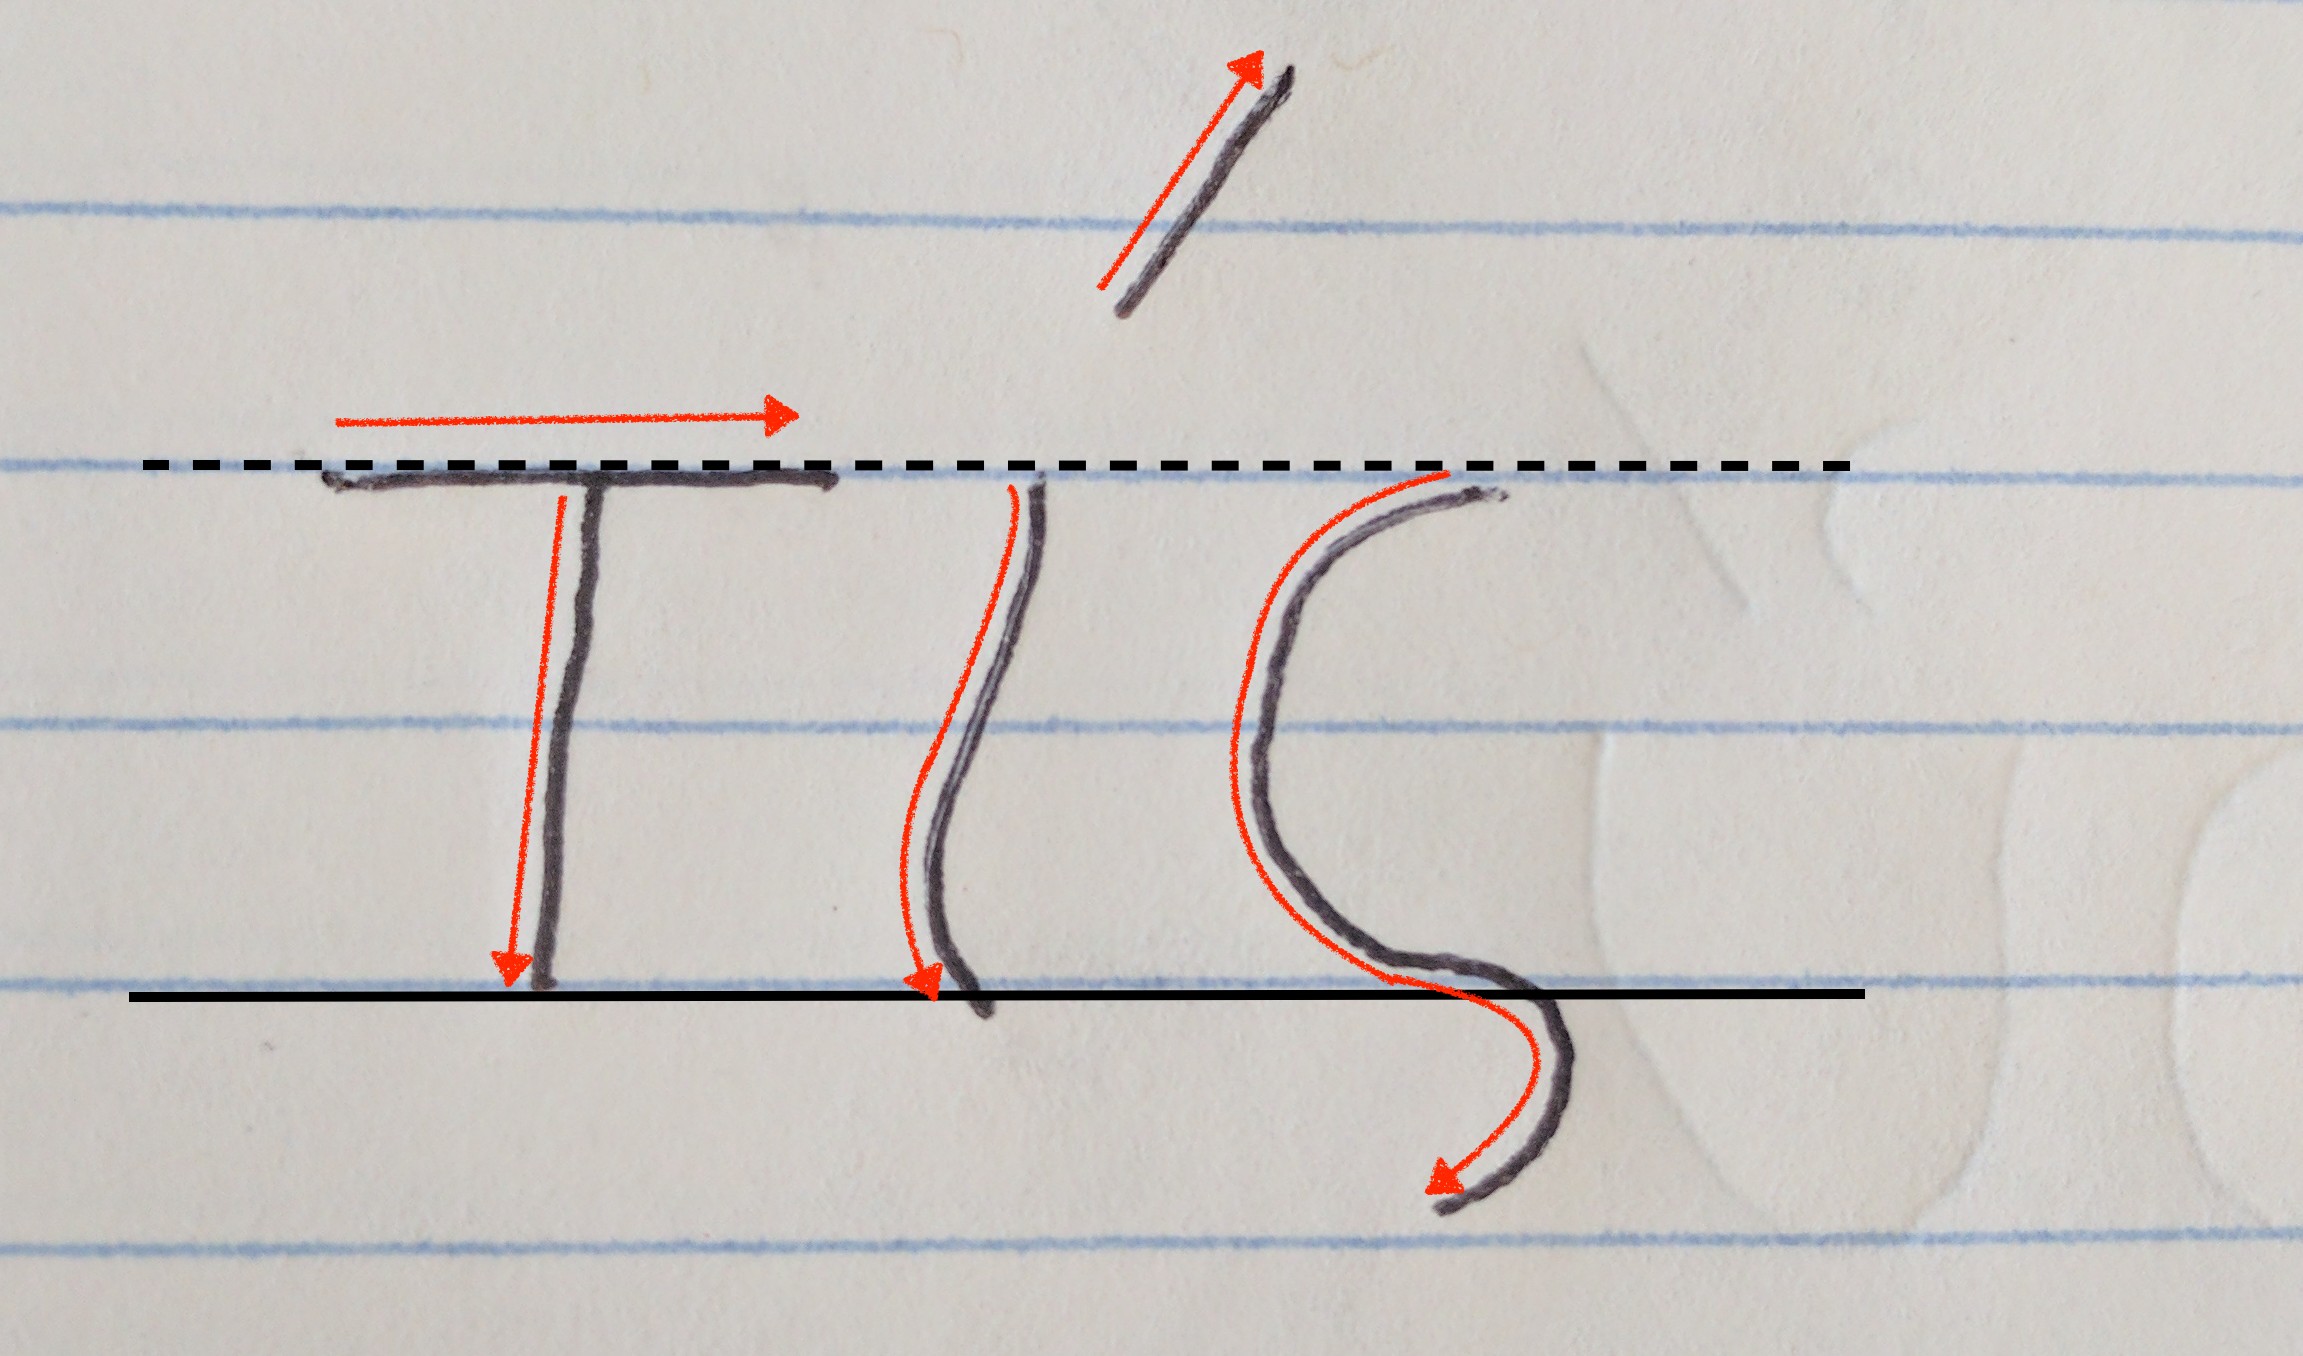 τίς